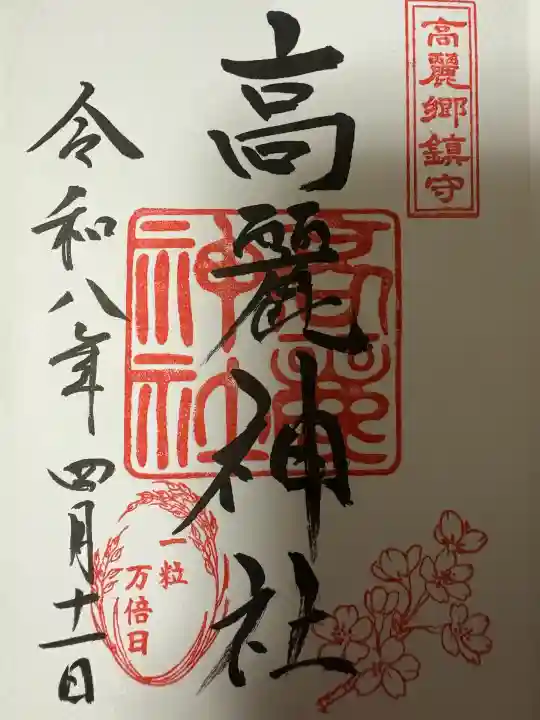 高麗郷鎮守
高麗神社
高麗神社
令和八年四月十一日
一粒
万倍日